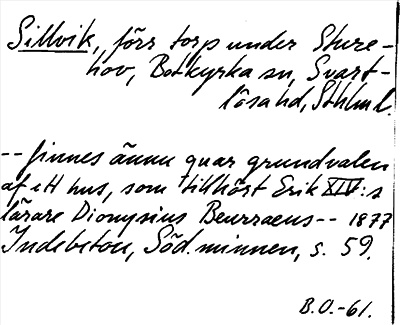 Sillvik, förs torp under Sture-
hov, Botkyrka sn, Svart-
lösa hd, Sthlm l.
-- finnes ännu quar grundvalen
af ett hus, som tillhört Erik XIV:s
lärare Dionysius Beurraeus -- 1877
Indebetou, Söd.minnen, s. 59.
B.O.-61.